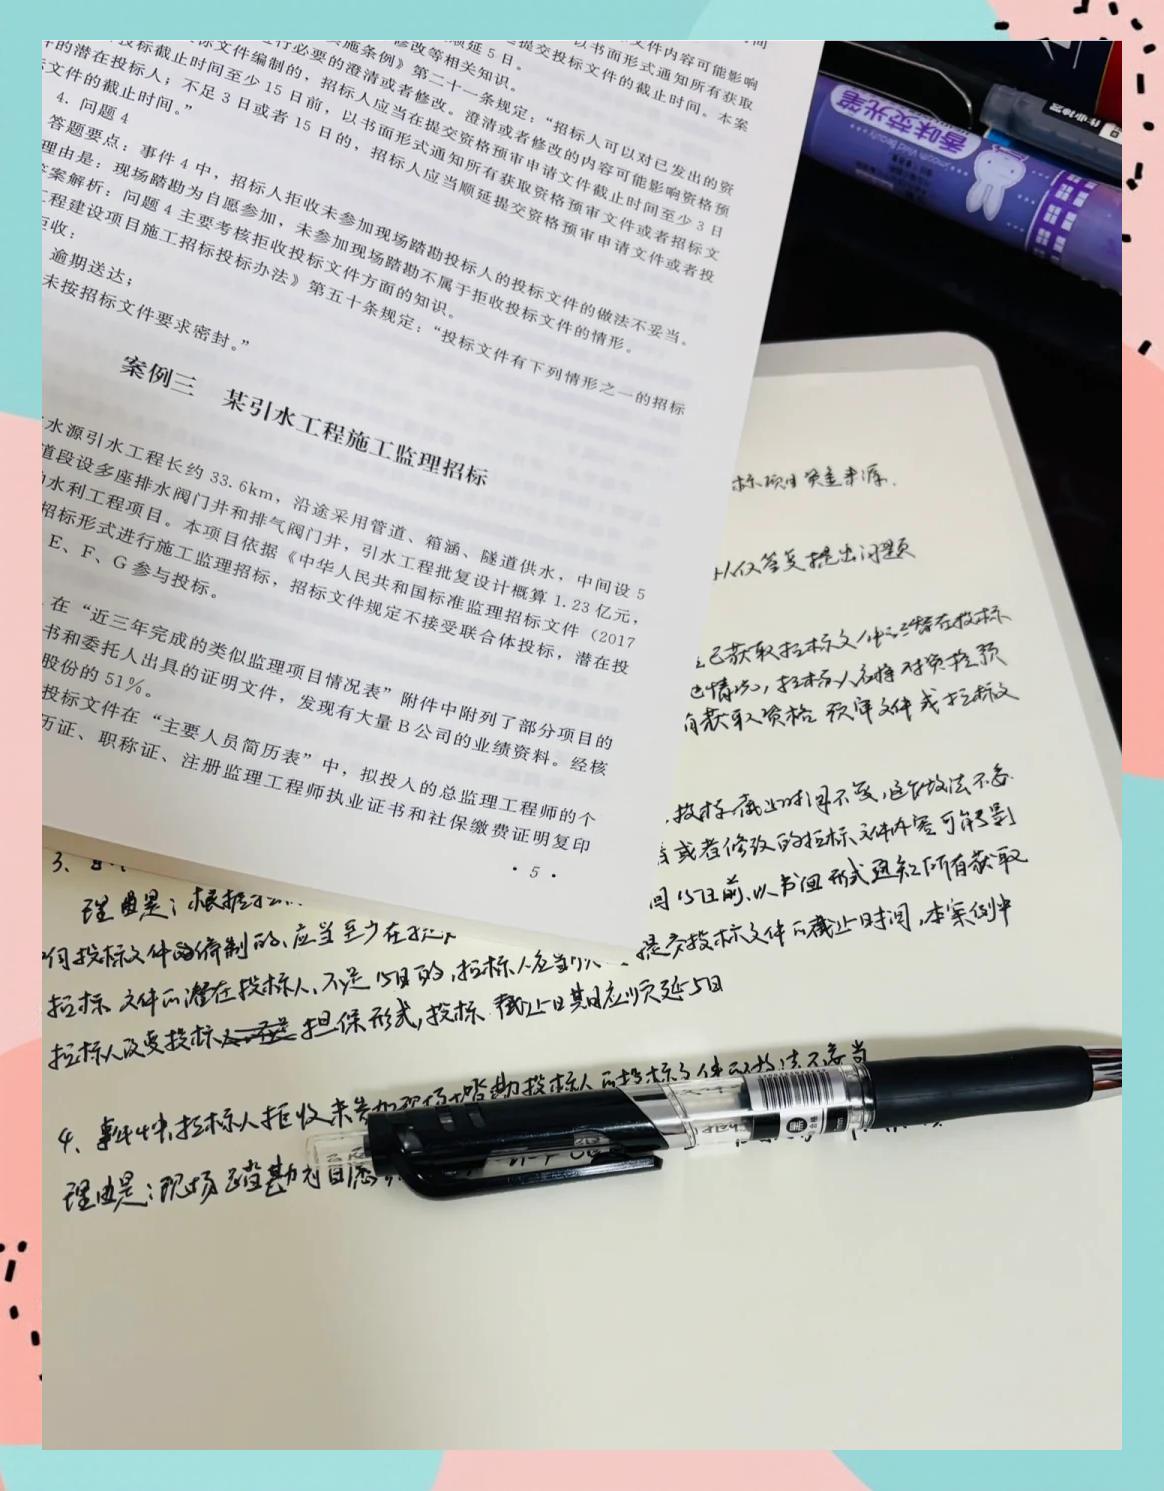 顺延5日。
修改等相关知识。
施条例》第二十一条规定：“招标人可以对已发出的资
行必要的澄清或者修改。澄清或者修改的内容可能影响资格预
标文件编制的，招标人应当在提交资格预审申请文件截止时间至少3日
投标截止时间至少15日前，以书面形式通知所有获取资格预审文件或者招标文
的潜在投标人；不足3日或者15日的，招标人应当顺延提交资格预审申请文件或者投
文件的截止时间。”
4. 问题4
答题要点：事件4中，招标人拒收未参加现场踏勘投标人的投标文件的做法不妥当。
理由是：现场踏勘为自愿参加，未参加现场踏勘不属于拒收投标文件的情形。
答案解析：问题4主要考核拒收投标文件方面的知识。
工程建设项目施工招标投标办法》第五十条规定：“投标文件有下列情形之一的招标
拒收：
逾期送达；
未按招标文件要求密封。”
案例三 某引水工程施工监理招标
水源引水工程长约33.6km，沿途采用管道、箱涵、隧道供水，中间设5
道段设多座排水阀门井和排气阀门井，引水工程批复设计概算1.23亿元，
水利工程项目。本项目依据《中华人民共和国标准监理招标文件（2017
招标形式进行施工监理招标，招标文件规定不接受联合体投标，潜在投
E、F、G参与投标。
在“近三年完成的类似监理项目情况表”附件中附列了部分项目的
书和委托人出具的证明文件，发现有大量B公司的业绩资料。经核
股份的51%。
投标文件在“主要人员简历表”中，拟投入的总监理工程师的个
历证、职称证、注册监理工程师执业证书和社保缴费证明复印
·5·
香味荧光笔
标项目资金来源.
人仅答复提出问题
已获取招标文件的潜在投标
情况，招标人应将对资格预
有获取资格预审文件或招标文
投标截止时间不变，这个做法不妥
或者修改的招标文件内容可能影
间15日前，以书面形式通知所有获取
提交投标文件的截止时间，本案例中
3、
理由是：根据
何投标文件的编制的、应当至少在
招标文件的潜在投标人、不足15日的，招标人应当
招标人改变投标担保形式，投标截止日期应顺延5日
4、事件4中，招标人拒收未参加现场踏勘投标人的投标文件的做法不妥当
理由是：现场踏勘为自愿